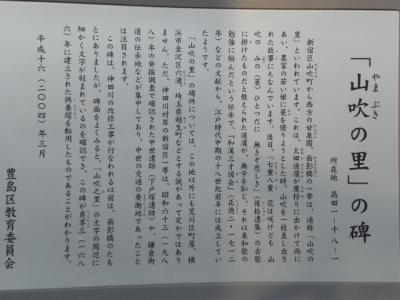 「山吹の里」の碑
やまぶき
所在地 高田一-十八-一
新宿区山吹町から西方の甘泉園、面影橋の一帯は、通称「山吹の
里」といわれています。これは、太田道灌が鷹狩りに出かけて雨に
あい、農家の若い娘に蓑を借りようとした時、山吹を一枝差し出さ
れた故事にちなんでいます。後日、「七重八重 花は咲けども 山
吹の みの(蓑)ひとつだに 無きぞ悲しき」(後拾遺集)の古歌
に掛けたものだと教えられた道灌が、無学を恥じ、それ以来和歌の
勉強に励んだという伝承で、「和漢三才図会」(正徳二・一七一二
年)などの文献から、江戸時代中期の十八世紀前半には成立してい
たようです。
「山吹の里」の場所については、この地以外にも荒川区町屋、横
浜市金沢区六浦、埼玉県越生町などとする説があって定かではあり
ません。ただ、神田川対岸の新宿区一帯は、昭和六十三(一九八
八)年の発掘調査で確認された中世遺跡(下戸塚遺跡)や、鎌倉街
道の伝承地などが集中しており、中世の交通の要衝地であったこと
は注目されます。
この碑は、神田川の改修工事が行なわれる以前は、面影橋のたも
とにありましたが、碑面をよくみると、「山吹之里」の文字の周辺に
細かく文字が刻まれているのを確認でき、この碑が貞享三(一六八
六)年に建立された供養塔を転用したものであることがわかります。
平成十六(二〇〇四)年三月
豊島区教育委員会